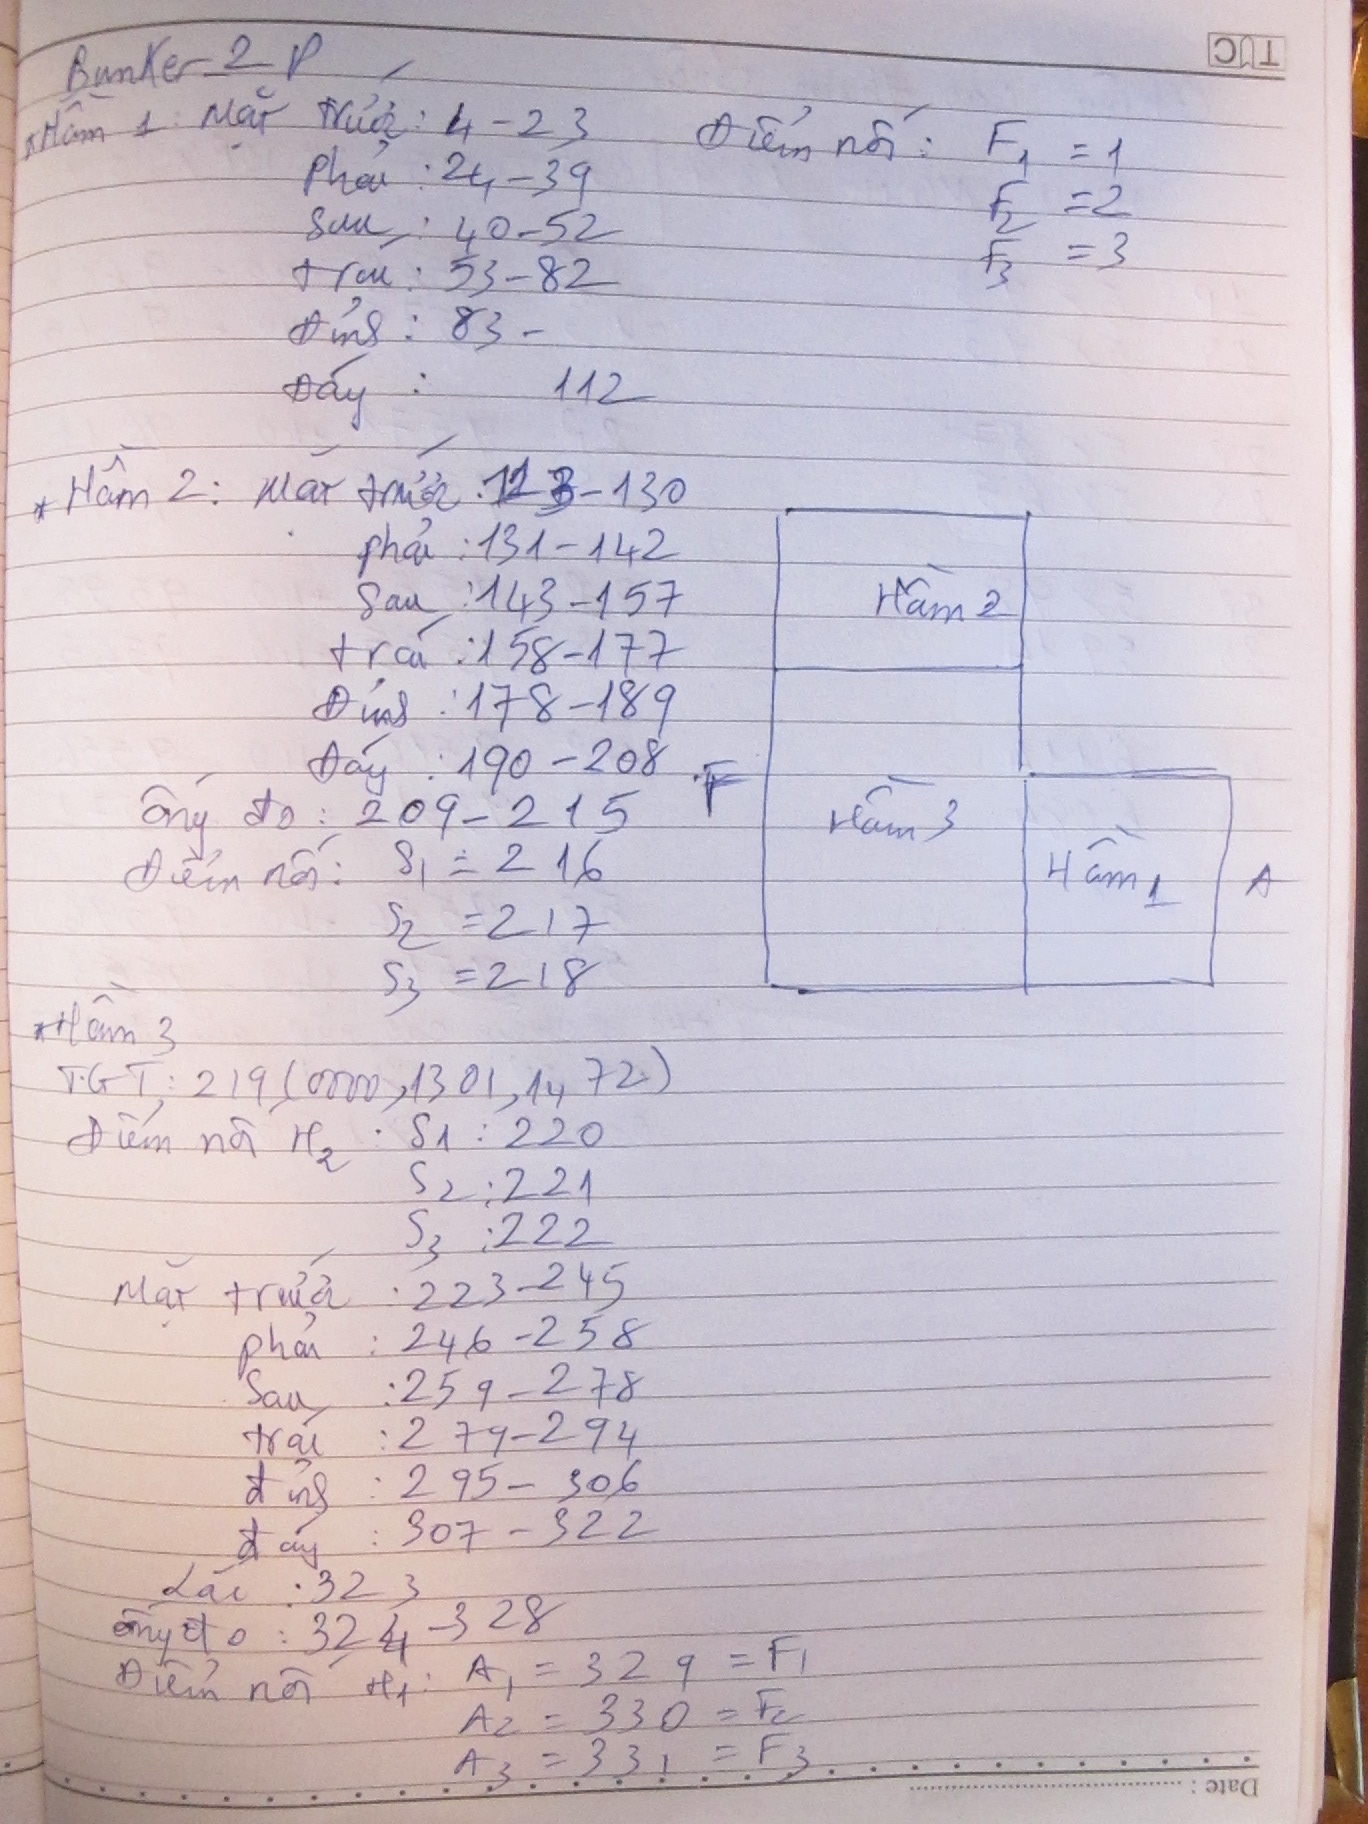 Bunker 2 P
*Hầm 1: Mặt trước: 4-23
Điểm nối: F1 = 1
phải: 24-39
F2 = 2
Sau: 40-52
F3 = 3
trái: 53-82
Đỉnh: 83-
Đáy: 112
*Hầm 2: Mặt trước: 113-130
phải: 131-142
Sau: 143-157
trái: 158-177
Đỉnh: 178-189
Đáy: 190-208
ống đo: 209-215
Điểm nối: S1 = 216
S2 = 217
S3 = 218
Hầm 2
F
Hầm 3
Hầm 1
A
*Hầm 3
T.G.T: 219 (0000, 1301, 1472)
Điểm nối H2: S1: 220
S2: 221
S3: 222
Mặt trước: 223-245
phải: 246-258
Sau: 259-278
trái: 279-294
đỉnh: 295-306
đáy: 307-322
Lái: 323
ống đo: 324-328
Điểm nối H1: A1 = 329 = F1
A2 = 330 = F2
A3 = 331 = F3
Date:
TUC